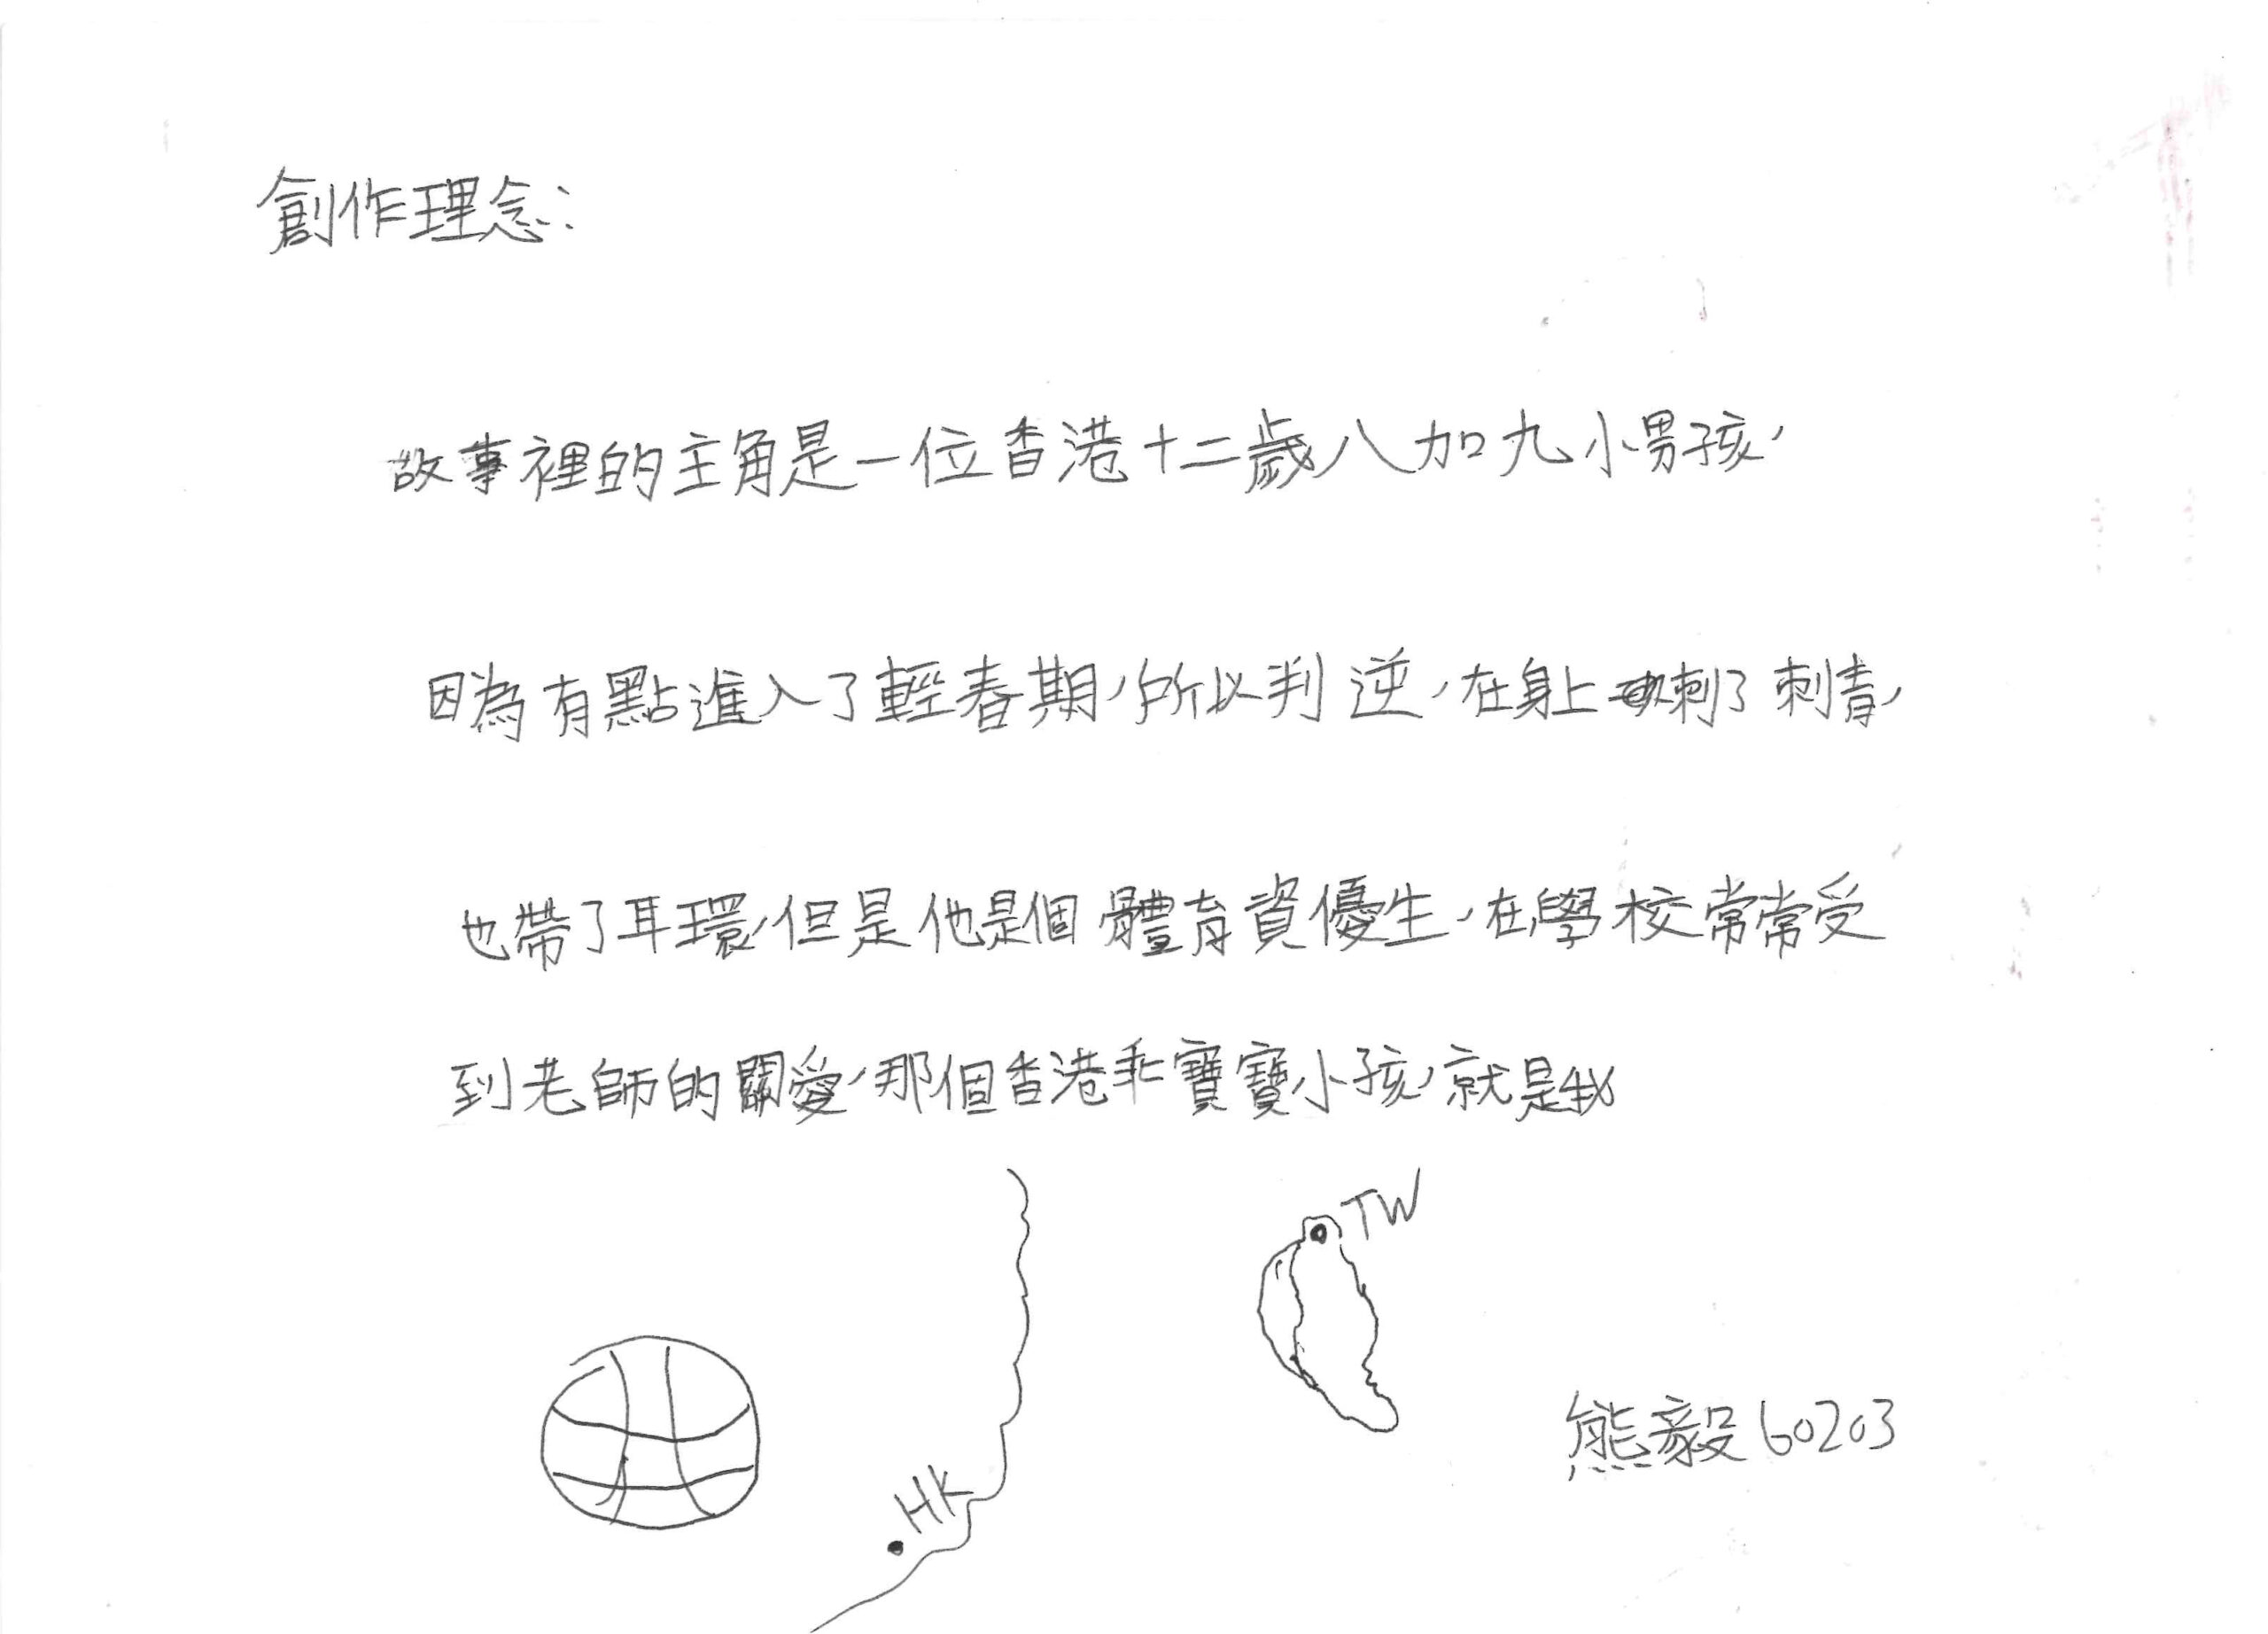 創作理念：
故事裡的主角是一位香港十二歲八加九小男孩，
因為有點進入了輕春期，所以判逆，在身上刺了刺青，
也帶了耳環，但是他是個體育資優生，在學校常常受
到老師的關愛，那個香港乖寶寶小孩，就是我
TW
HK
熊毅 60203